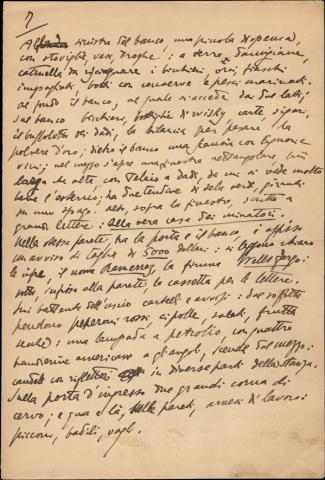 7
sinistra del banco, una piccola dispensa,
con stoviglie, vasi, droghe; a terra, damigiane,
catinella da risciacquare i bicchieri, orci, fiaschi
impagliati, botti con conserve e pesci marinati.
al fondo il banco, al quale si accede da due lati;
sul banco bicchieri, bottiglie di wisky, carte, sigari,
il bussolotto dei dadi, la bilancia per pesare la
polvere d'oro; dietro il banco una panca con
; nel mezzo s'apre una finestra rettangolare, più
larga che alta, con telaio a dadi, da cui si vede molto
bene l'esterno; ha due tendine di tela verde, giranti
su uno spago. alto, sopra la finestra, scritto a
grandi lettere: Alla vera casa dei minatori.
Nella stessa parete, tra la porta e il banco, è affisso
un avviso di taglia di 5000 dollari: si leggono chiare
le cifre, il nome Ramerrez, la firma Wells Fargo:
sotto, infissa alla parete, la cassetta per le lettere.
Sui battenti dell'uscio cartelli e avvisi: dal soffitto
pendono peperoni rossi, cipolle, salati, frutta
secche; una lampada a petrolio, con quattro
banderine americane agli angoli, scende sul mezzo:
candele con riflettori in diverse parti della stanza.
Sulla porta d'ingresso due grandi corna di
cervo; e qua e là, nelle pareti, arnesi di lavoro:
picconi, badili, vagli.